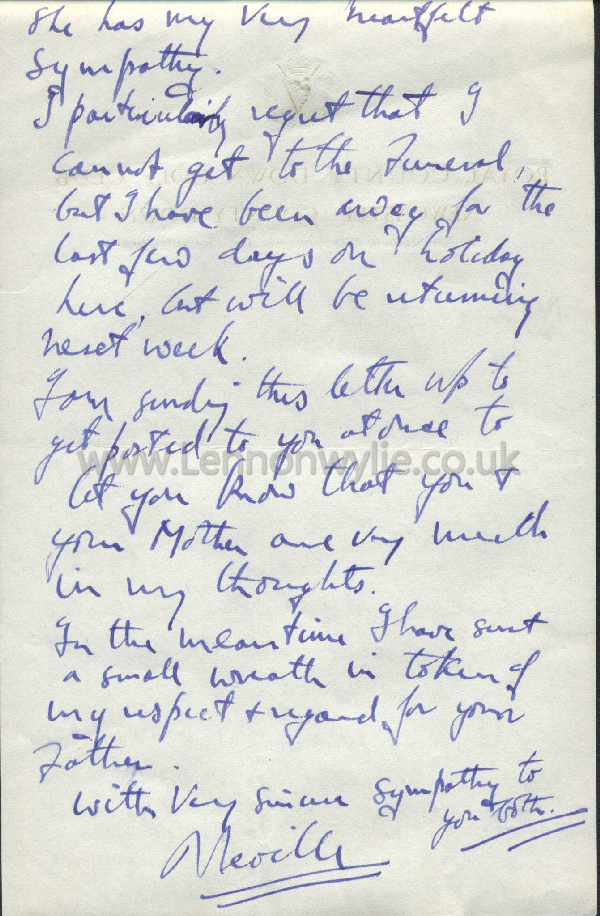 She has my very heartfelt
sympathy.
I particularly regret that I
cannot get to the Funeral,
but I have been away for the
last few days on holiday
here, but will be returning
next week.
I am sending this letter up to
get posted to you at once to
let you know that you +
your Mother are very much
in my thoughts.
In the meantime I have sent
a small wreath in token of
my respect + regard for your
Father.
With very sincere sympathy to
you both.
Neville
www.Lennonwylie.co.uk